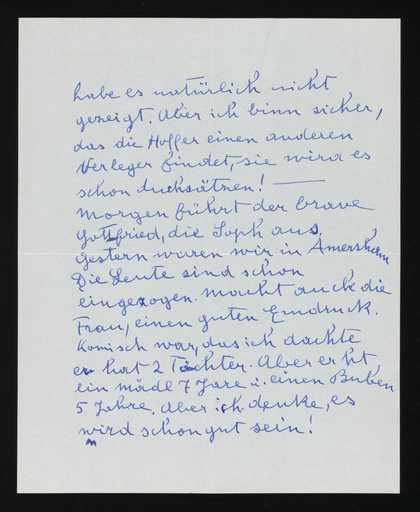 habe es natürlich nicht
gezeigt. Aber ich binn sicher,
das die Hoffer einen anderen
Verleger findet, sie wird es
schon duchsätnen! —
Morgen führt der brave
Gottfried, die Soph aus.
Gestern waren wir in Amersham
Die Leute sind schon
eingezogen. Macht auch die
Frau, einen guten Eindruck.
Komisch war, das ich dachte
er hat 2 Töchter. Aber er ht
ein mädl 7 Jare u. einen Buben
5 Jahre. Aber ich denke, es
wird schon gut sein!